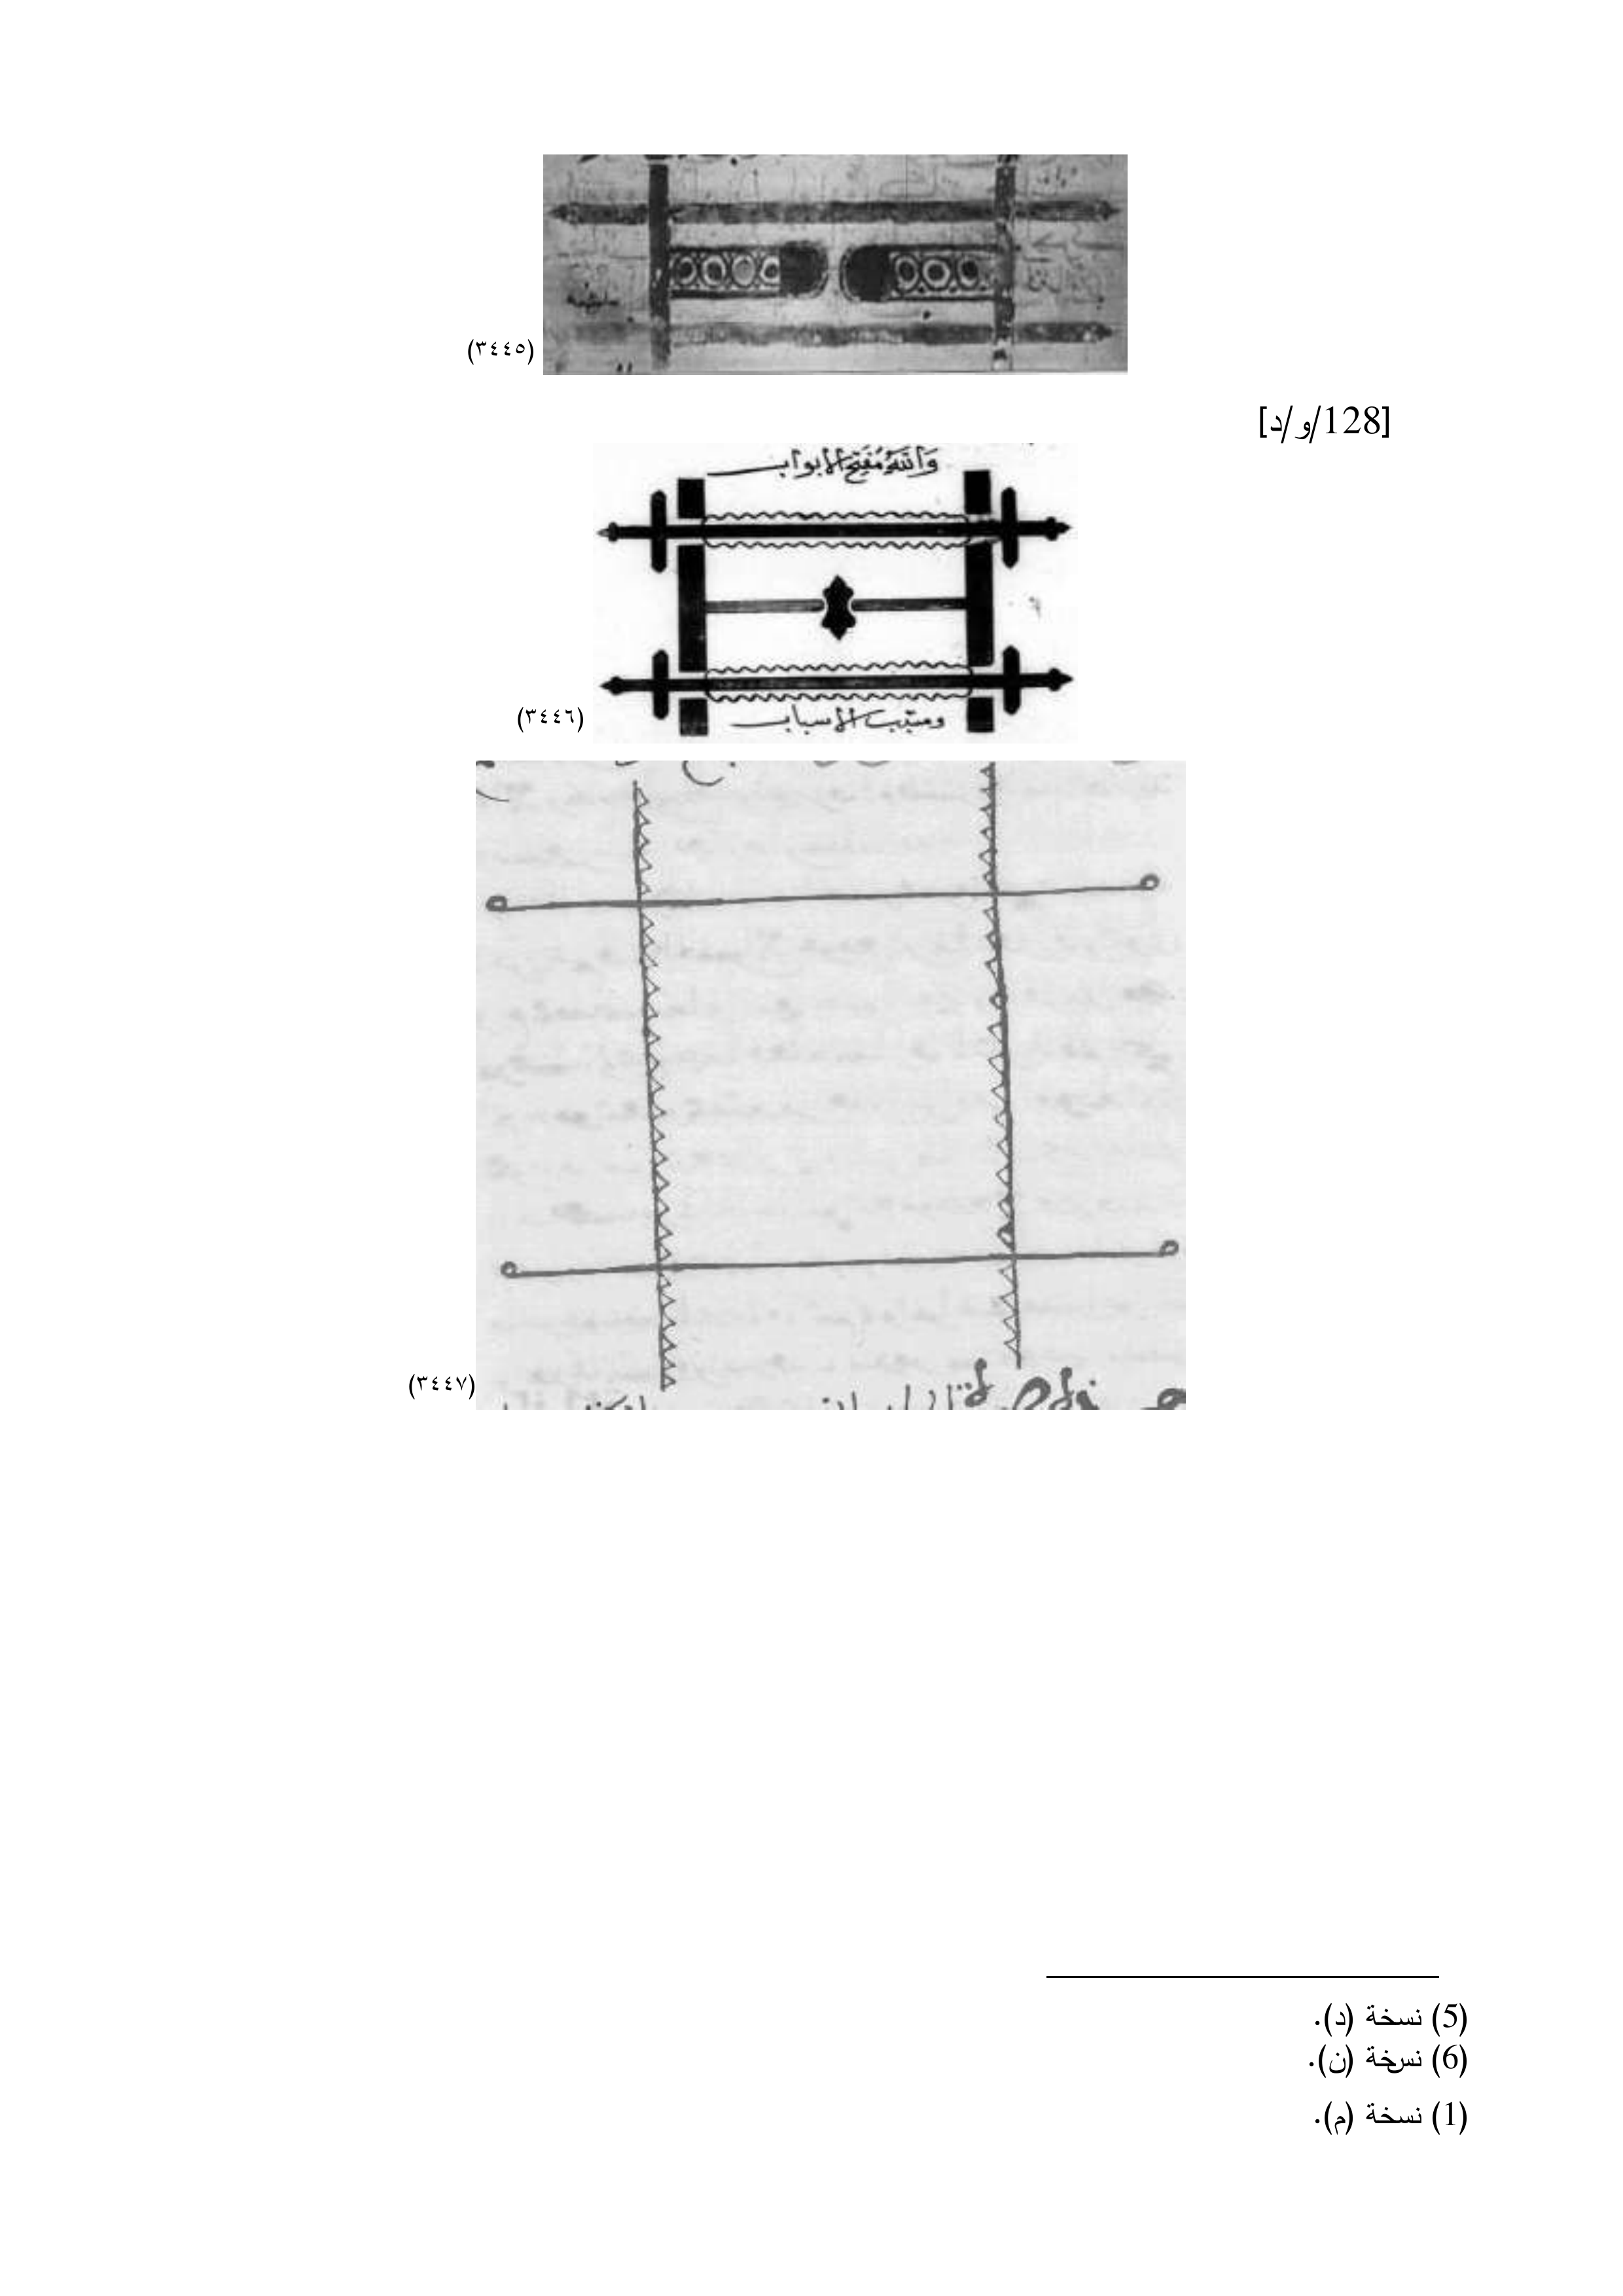 (٣٤٤٥)
[128/و/د]
وَاللهُ مُفَتِّح الابواب
(٣٤٤٦)
ومسبّب الاسباب
(٣٤٤٧)
(5) نسخة (د).
(6) نسخة (ن).
(1) نسخة (م).